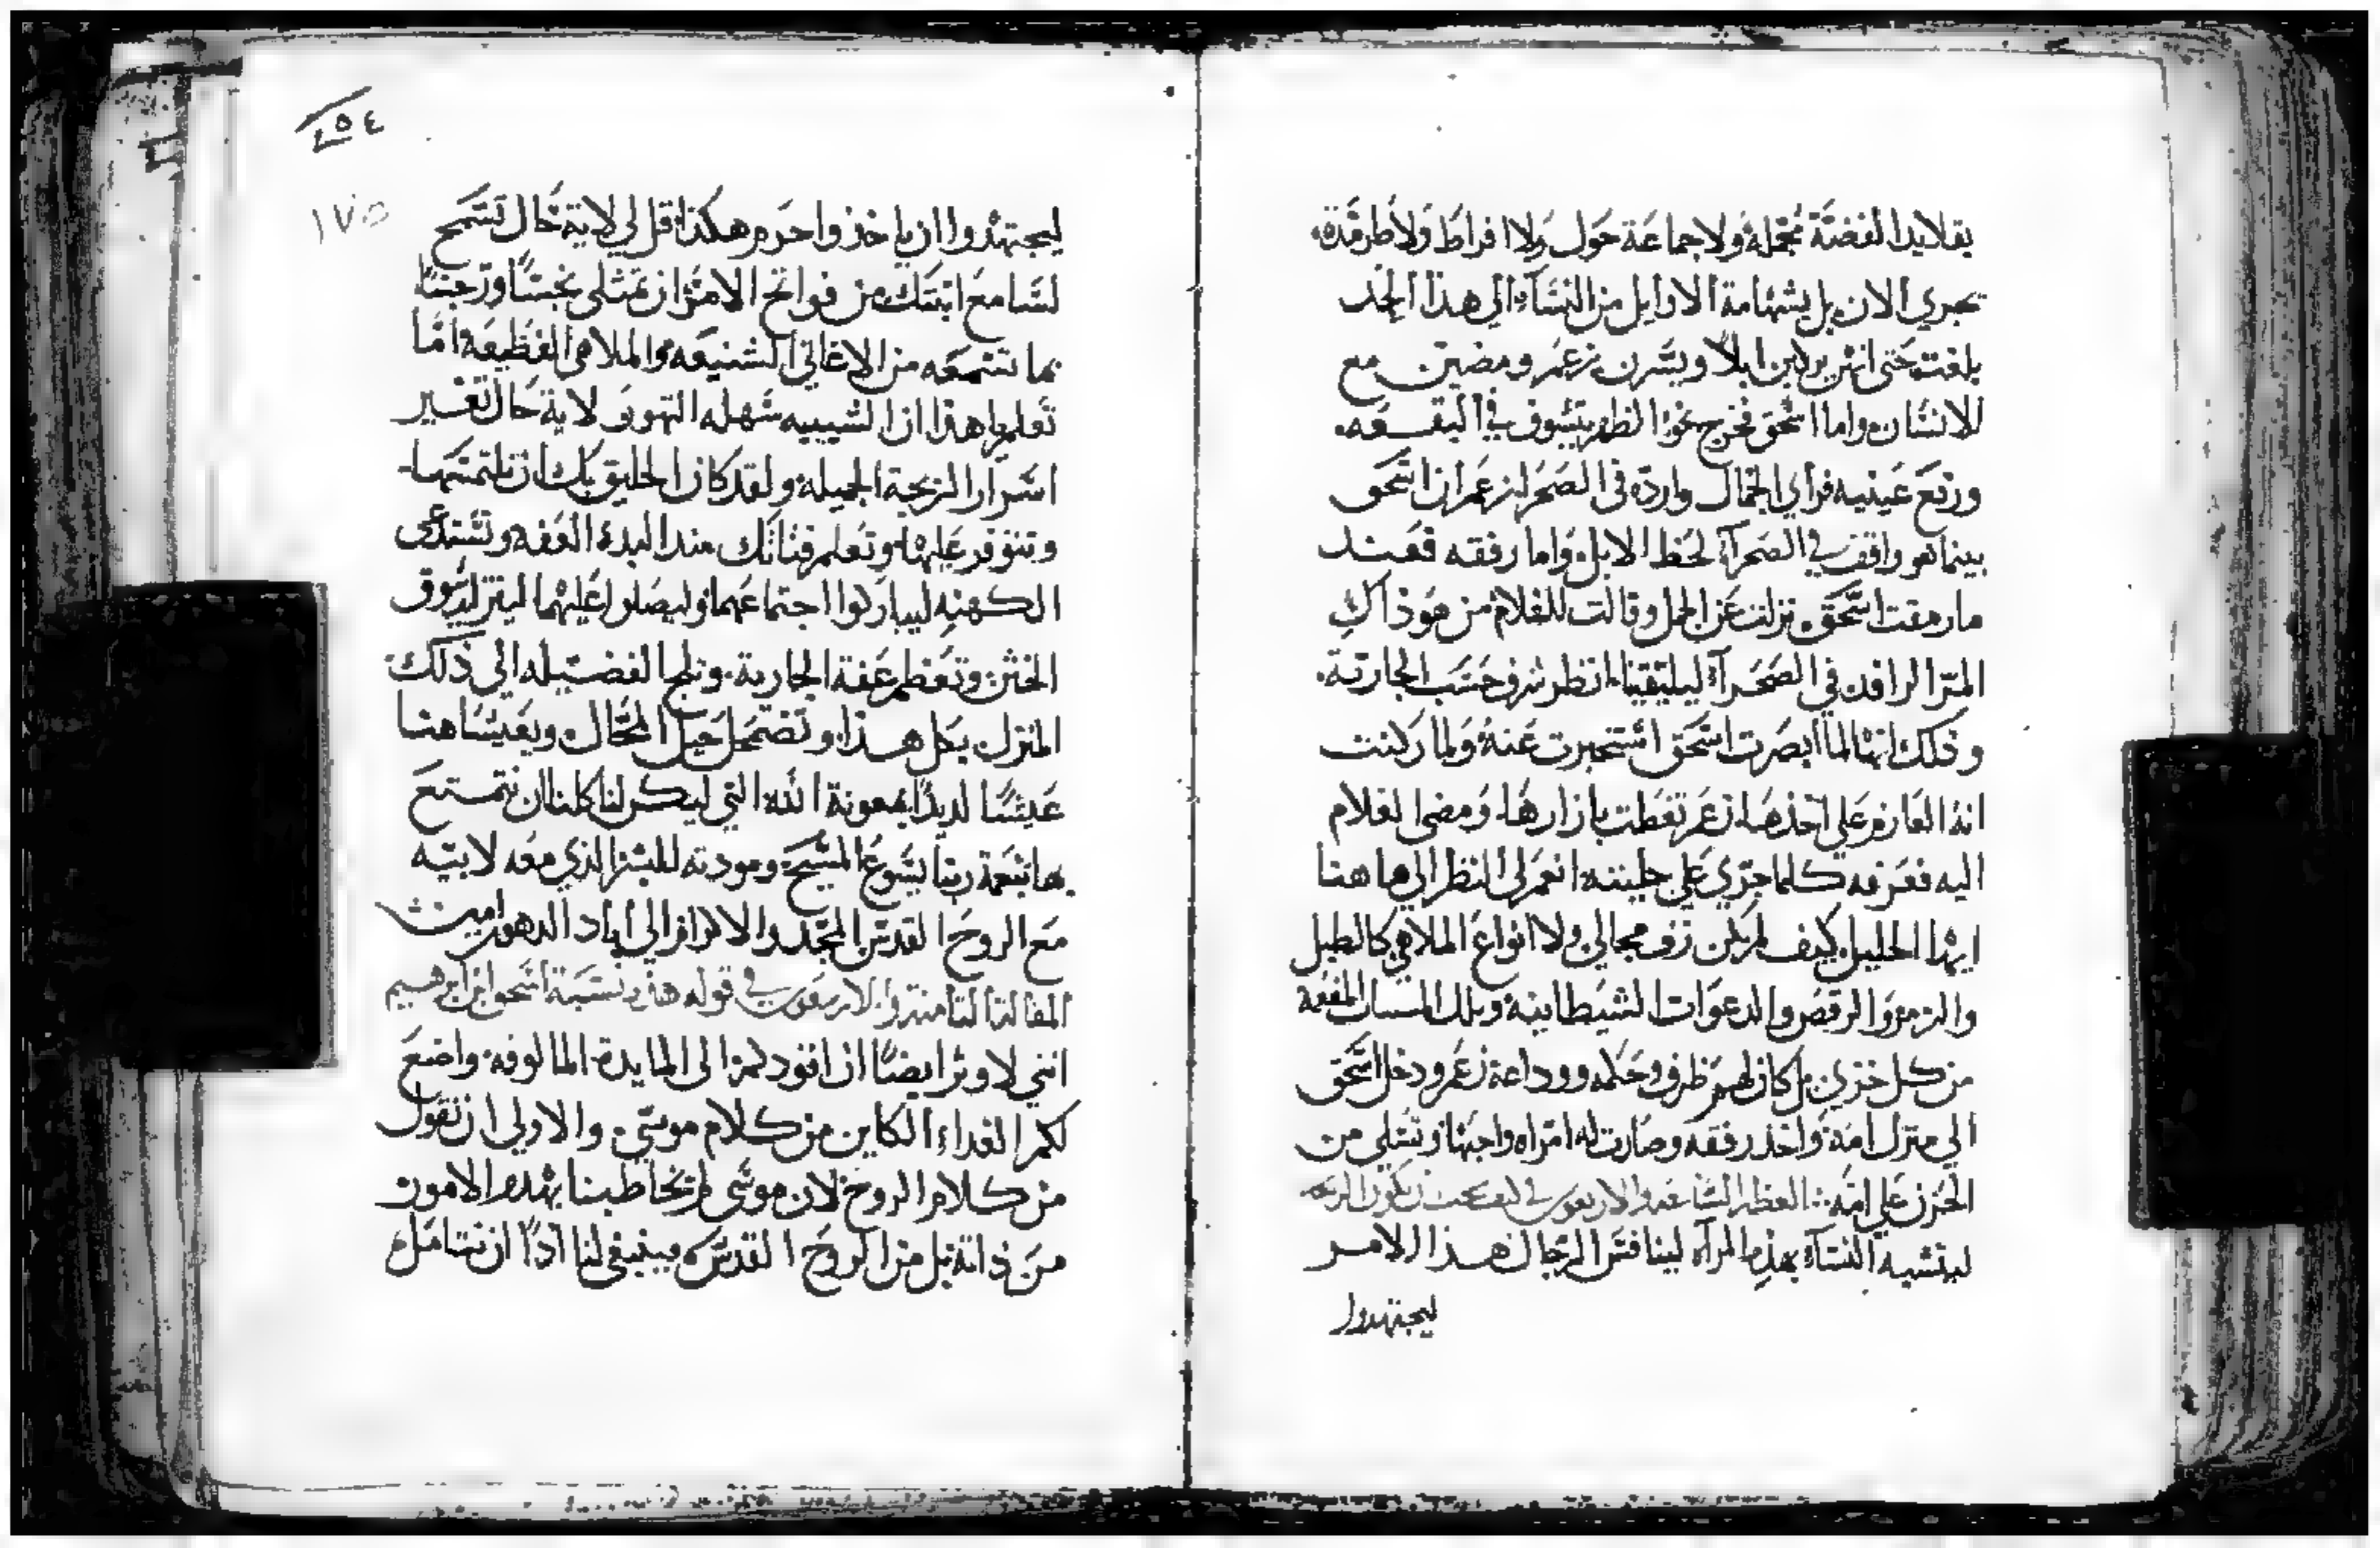 بقلايد الفضة مجمله ولا جماعة حول ولا افراط ولا طرفة
تجري الان بل بشهامة الاوايل من النساء الي هذا الحد
بلغت حتى انهن يركبن ابلا ويسرن زعم ومضين مع
للانسان واما اسحق فخرج نحو الظهر يتسوف في البقعه
ورفع عينيه فراي الجمال وارده في الصحر لم زعم ان اسحق
بينما هو واقف في الصحرآء لحظ الابل واما رفقه فعند
ما رمقت اسحق نزلت عن الجمل وقالت للغلام من هو ذاك
المرا الرافد في الصحرآء ليليقينا انظر شرف حسب الجارية
وذلك انها لما ابصرت اسحق استخبرت عنه ولما ركنت
انه العازم على اخذها زعم تغطت بازارها ومضى الغلام
اليه فعرفه كلما جرى على حليته انعم لي النظر الي ها هنا
ايها الخليل كيف لم يكن زف مجالي ولا انواع الملاهي كالطبل
والزمر والرقص والدعوات الشيطانيه وتلك المسبات المفعمه
من كل خزي بل كان لهم ظرف وحكمه ووداعة زعم ودخل اسحق
الي منزل امه واخذ رفقه وصارت له امراه واحبها وتسلي من
الحزن علي امه العظه السابعه والاربعون في
ليتشبه النساء بهذه المرآه لينافس الرجال هذا الامر
ليجتهدوا
٤٥٤
١٧٥
ليجتهدوا ان ياخذوا حرم هكذا قل لي لاية حال تسمح
لسامع ابنتك من فواتح الامر ان تمتلي نجسا ورجسا
بما تسمعه من الاغاني الشنيعه والملاهي الفظيعة اما
تعلم هذا ان الشبيبه سهله التهور لاية حال تغير
اسرار الزيجة الجميله ولقد كان الخليق بك ان تلتمسها
وتتوفر عليها وتعلم فتاتك منذ البدء العفه وتستدعي
الكهنه ليباركوا اجتماعهما وليصلوا عليهما ليتزايد شوق
الختن وتعظم عفة الجارية وتلج الفضيله الى ذلك
المنزل بكل هذا وتضمحل حيل المحال ويعيشا هنا
عيشا لذيذا بمعونة الله التي ليكن لنا كلنا ان نتمتع
بها بنعمة ربنا يسوع المسيح ومودته للبشر الذي معه لابيه
مع الروح القدس المجد والاكرام الى اباد الدهور امين
المقالة الثامنة والاربعون في قوله هذه نسبة اسحق ابن ابرهيم
انني لاوثر ايضا ان اقودكم الى المايدة المالوفه واضع
لكم الغداء الكاين من كلام موسى والاولى ان نقول
من كلام الروح لان موسى لم يخاطبنا بهذه الامور
من ذاته بل من الروح القدس ينبغي لنا اذا ان نتامل